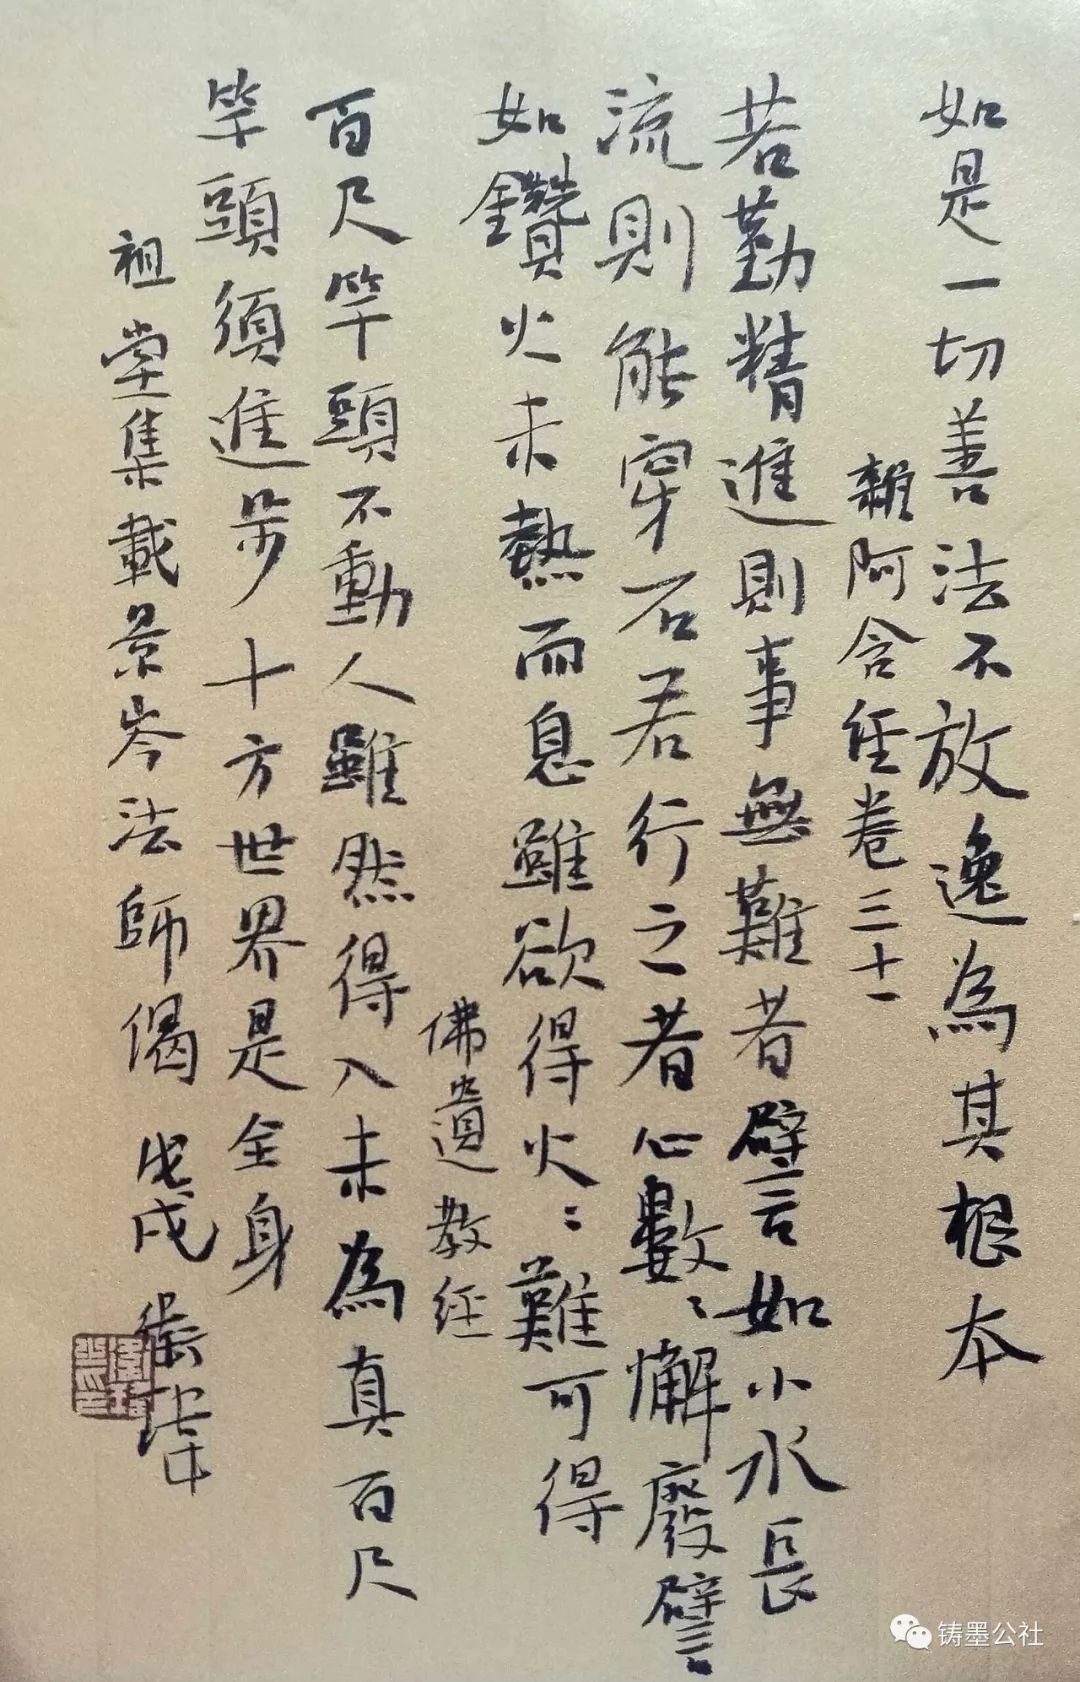 如是一切善法不放逸為其根本
雜阿含經卷三十一
若勤精進則事無難者譬如小水長
流則能穿石若行之者心數〻懈廢譬
如鑽火未熱而息雖欲得火〻難可得
佛遺教經
百尺竿頭不動人雖然得入未為真百尺
竿頭須進步十方世界是全身
祖堂集載景岑法師偈 戊戌
铸墨公社